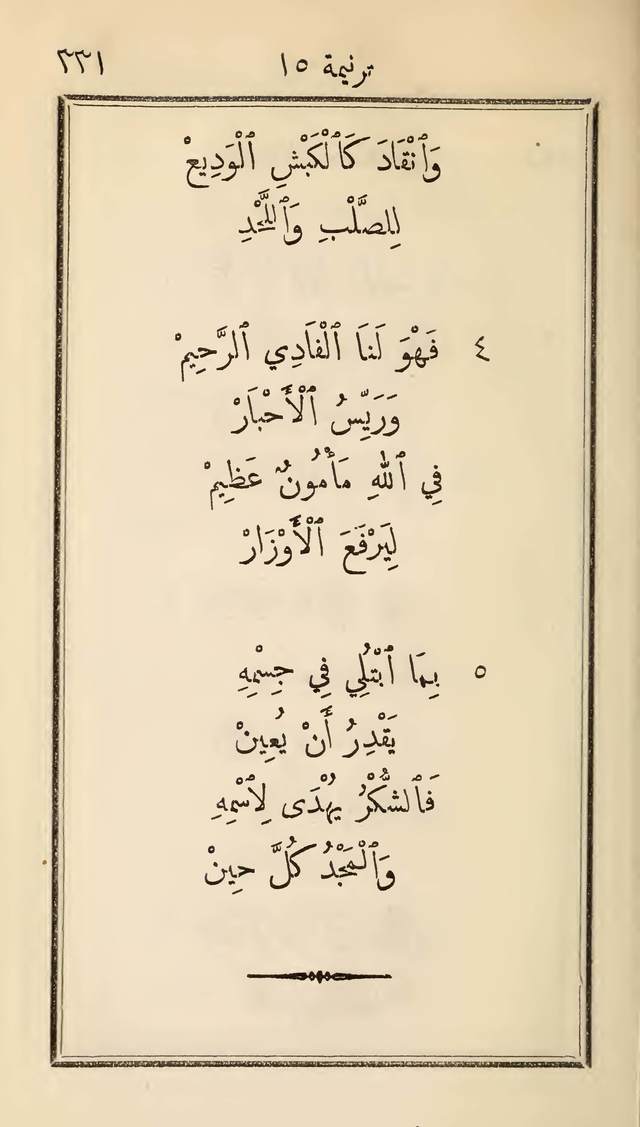 ترنيمة ١٥ ٣٣١
وَٱنْقَادَ كَٱلْكَبْشِ ٱلْوَدِيعْ
لِلصَّلْبِ وَٱللَّحْدِ
٤ فَهْوَ لَنَا ٱلْفَادِي ٱلرَّحِيمْ
وَرَيِّسُ ٱلْأَحْبَارْ
فِي ٱللهِ مَأْمُونٌ عَظِيمْ
لِيَرْفَعَ ٱلْأَوْزَارْ
٥ بِمَا ٱبْتُلِي فِي جِسْمِهِ
يَقْدِرُ أَنْ يُعِينْ
فَٱلشُّكْرُ يُهْدَى لِٱسْمِهِ
وَٱلْمَجْدُ كُلَّ حِينْ